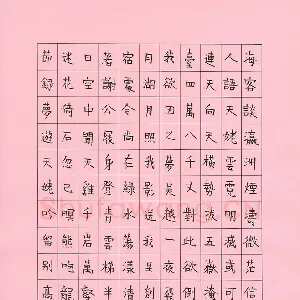 海客談瀛洲煙濤微茫信
人語天姥雲霓明滅或可
連天向天橫勢拔五嶽掩
臺四萬八千丈對此欲倒
我欲因之夢吳越一夜飛
月湖月照我影送我至剡
宿處今尚在淥水蕩漾清
著謝公屐身登青雲梯半
日空中聞天雞千巖萬轉
迷花倚石忽已暝熊咆龍
節錄夢遊天姥吟留別高